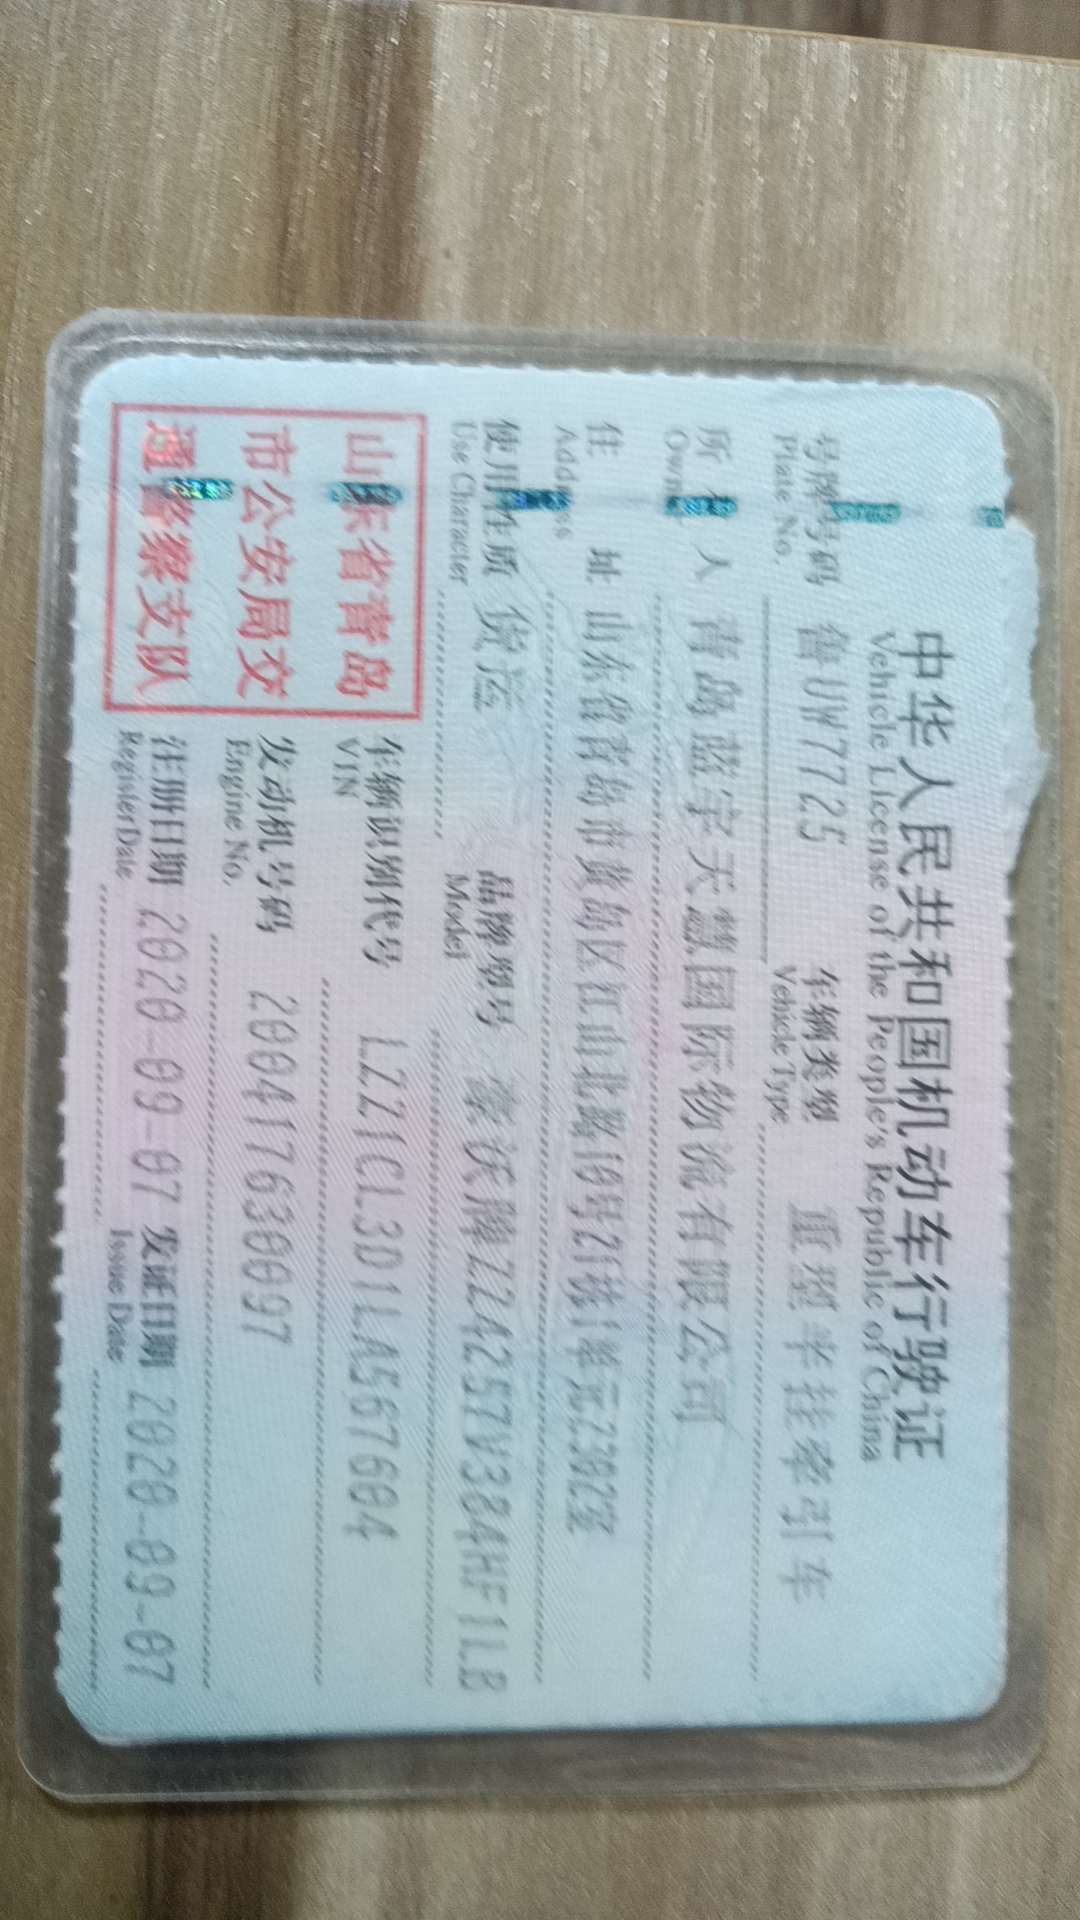 中华人民共和国机动车行驶证
Vehicle License of the People's Republic of China
号牌号码 鲁UW7725 车辆类型 重型半挂牵引车
Plate No. Vehicle Type
所有人 青岛蓝宇天慧国际物流有限公司
Owner
住址 山东省青岛市黄岛区江山北路10号21栋1单元2302室
Address
使用性质 货运 品牌型号 豪沃牌ZZ4257V384HF1LB
Use Character Model
山东省青岛
市公安局交
通警察支队
车辆识别代号 LZZ1CL3D1LA567604
VIN
发动机号码 200417630097
Engine No.
注册日期 2020-09-07 发证日期 2020-09-07
Register Date Issue Date